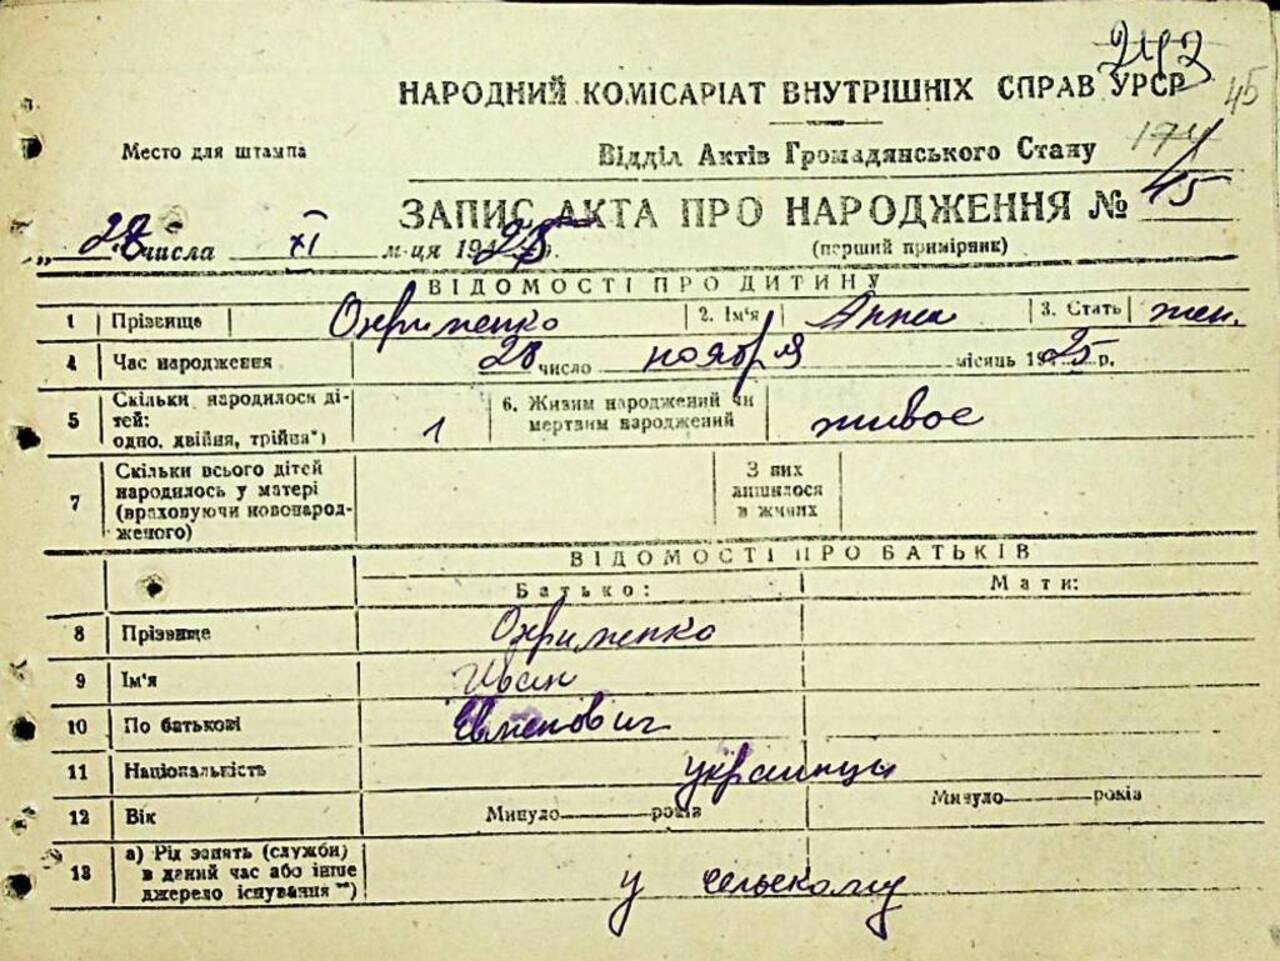 243
НАРОДНИЙ КОМІСАРІАТ ВНУТРІШНІХ СПРАВ УРСР 45
Место для штампа
Відділ Актів Громадянського Стану 174
ЗАПИС АКТА ПРО НАРОДЖЕННЯ № 45
„28" числа XI м-ця 1925 р. (перший примірник)
ВІДОМОСТІ ПРО ДИТИНУ
1 Прізвище Охрименко 2. Ім'я Анна 3. Стать жен.
4 Час народження 28 число ноября місяць 1925 р.
5 Скільки народилося дітей: одно, двійня, трійня*) 1 6. Живим народжений чи мертвим народжений живое
7 Скільки всього дітей народилось у матері (враховуючи новонародженого) З них лишилося в живих
ВІДОМОСТІ ПРО БАТЬКІВ
Батько: Мати:
8 Прізвище Охрименко
9 Ім'я Иван
10 По батькові Евменович
11 Національність украинцы
12 Вік Минуло років Минуло років
13 а) Рід занять (служби) в даний час або інше джерело існування **) у сельскому